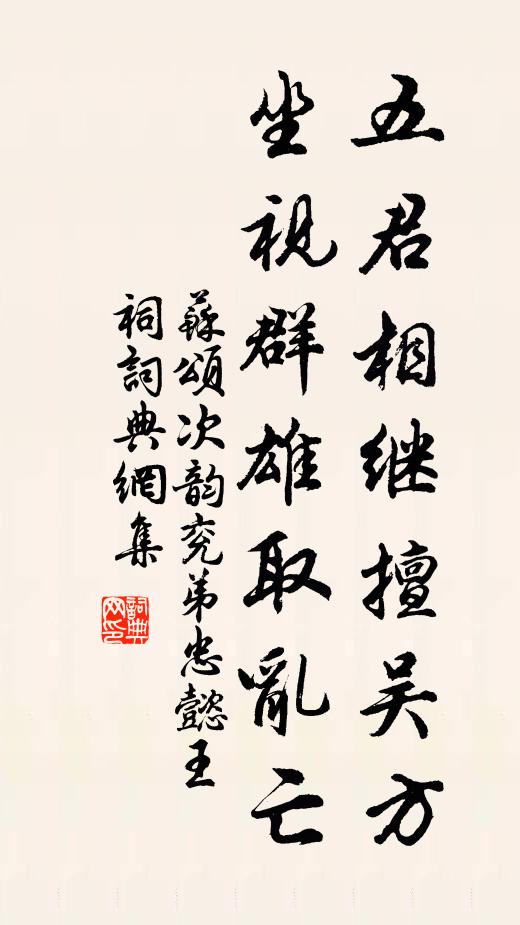 五君相继擅吴方
坐視群雄取亂亡
蘇頌次韵兖弟忠懿王
祠詞典網集
詞典网印